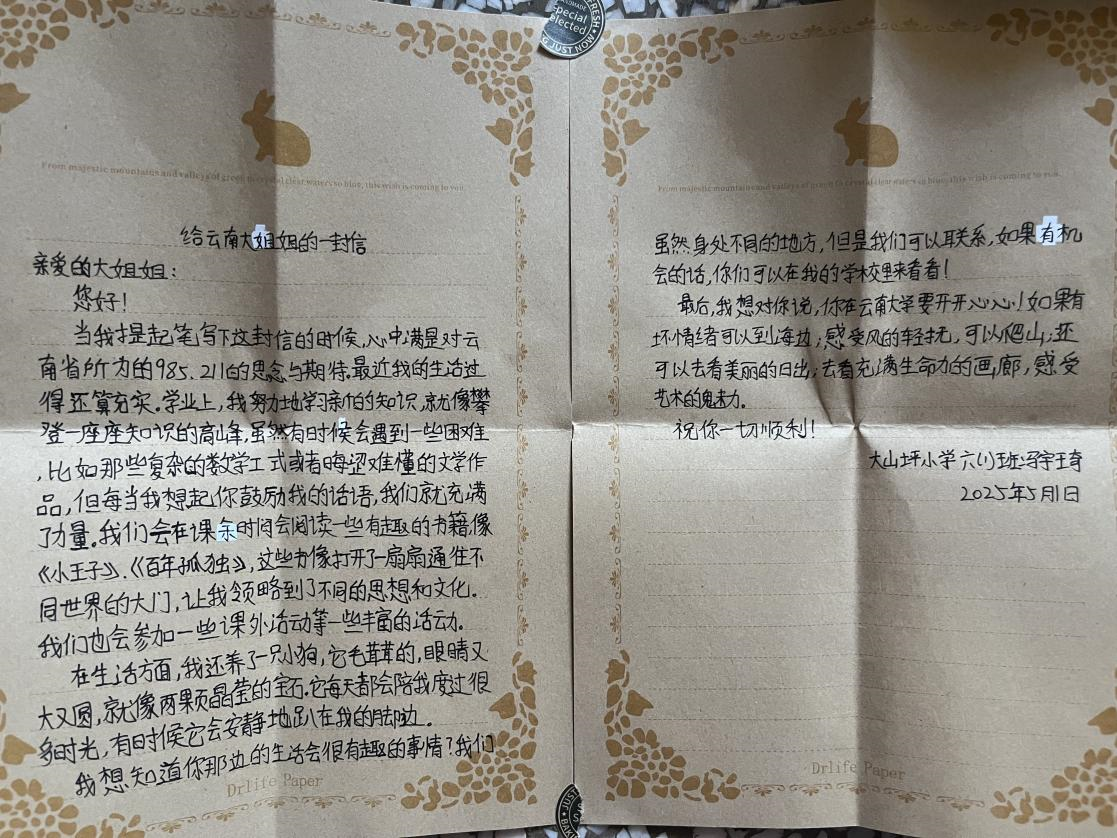 HANDMADE FRESH
Special
Selected
JUST NOW
From majestic mountains and valleys of green to crystal clear waters so blue, this wish is coming to you.
给云南大姐姐的一封信
亲爱的大姐姐：
您好！
当我提起笔，写下这封信的时候，心中满是对云
南省所为的985、211的思念与期待。最近我的生活过
得还算充实。学业上，我努力地学习新的知识，就像攀
登一座座知识的高峰，虽然有时候会遇到一些困难
，比如那些复杂的数学工式或者晦涩难懂的文学作
品，但每当我想起你鼓励我的话语，我们就充满
了力量。我们会在课余时间会阅读一些有趣的书籍，像
《小王子》、《百年孤独》，这些书像打开了一扇扇通往不
同世界的大门，让我领略到了不同的思想和文化。
我们也会参加一些课外活动等一些丰富的活动。
在生活方面，我还养了一只小狗，它毛茸茸的，眼睛又
大又圆，就像两颗晶莹的宝石。它每天都会陪我度过很
多时光，有时候它会安静地趴在我的脚边。
我想知道你那边的生活会很有趣的事情？我们
Drlife Paper
From majestic mountains and valleys of green to crystal clear waters so blue, this wish is coming to you.
虽然身处不同的地方，但是我们可以联系，如果有机
会的话，你们可以在我的学校里来看看！
最后，我想对你说，你在云南大学要开开心心！如果有
坏情绪可以到海边；感受风的轻抚，可以爬山；还
可以去看美丽的日出；去看充满生命力的画廊，感受
艺术的魅力。
祝你一切顺利！
大山坪小学六（1）班：冯宇琦
2025年5月1日
Drlife Paper